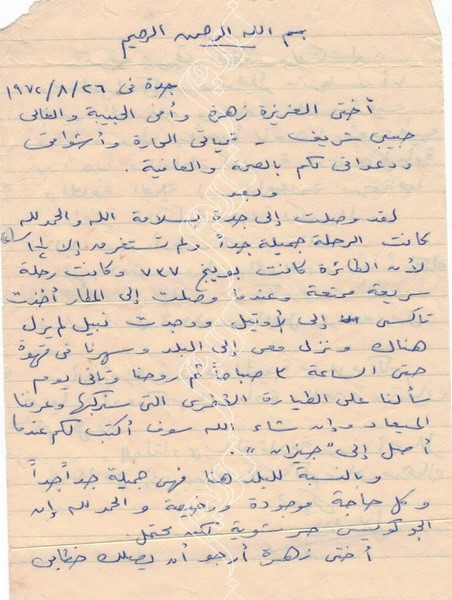 بسم الله الرحمن الرحيم
جدة فى ٢٦/٨/١٩٧٢
أختى العزيزة زهرة وأمى الحبيبة والغالى
حبيبى شريف - تحياتى الحارة وأشواقى
ودعواتى لكم بالصحة والعافية .
وبعد
لقد وصلت إلى جدة بسلامة الله والحمد لله
كانت الرحلة جميلة جداً ولم تستغرق إلا ١½ ساعة
لأن الطائرة كانت بوينج ٧٣٧ وكانت رحلة
سريعة ممتعة وعندما وصلت إلى المطار أخذت
تاكسى إلى لأوتيل ووجدت نبيل لم يزل
هناك ونزل معى إلى البلد وسهرنا فى قهوة
حتى الساعة ٣ صباحاً ثم روحنا وتانى يوم
سألنا على الطيارة الأخرى التى سنركبها وعرفنا
الميعاد وإن شاء الله سوف أكتب لكم عندما
أصل إلى "جيزان" .
وبالنسبة للبلد هنا فهى جميلة جداً جداً
وكل حاجة موجودة ورخيصة والحمد لله إن
الجو كويس حر شوية لكن محتمل .
أختى زهرة أرجو أن يصلك خطابى